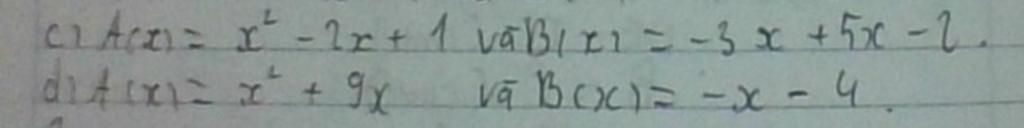 c) A(x) = x² - 2x + 1 và B(x) = -3x + 5x - 2.
d) A(x) = x² + 9x và B(x) = -x - 4.